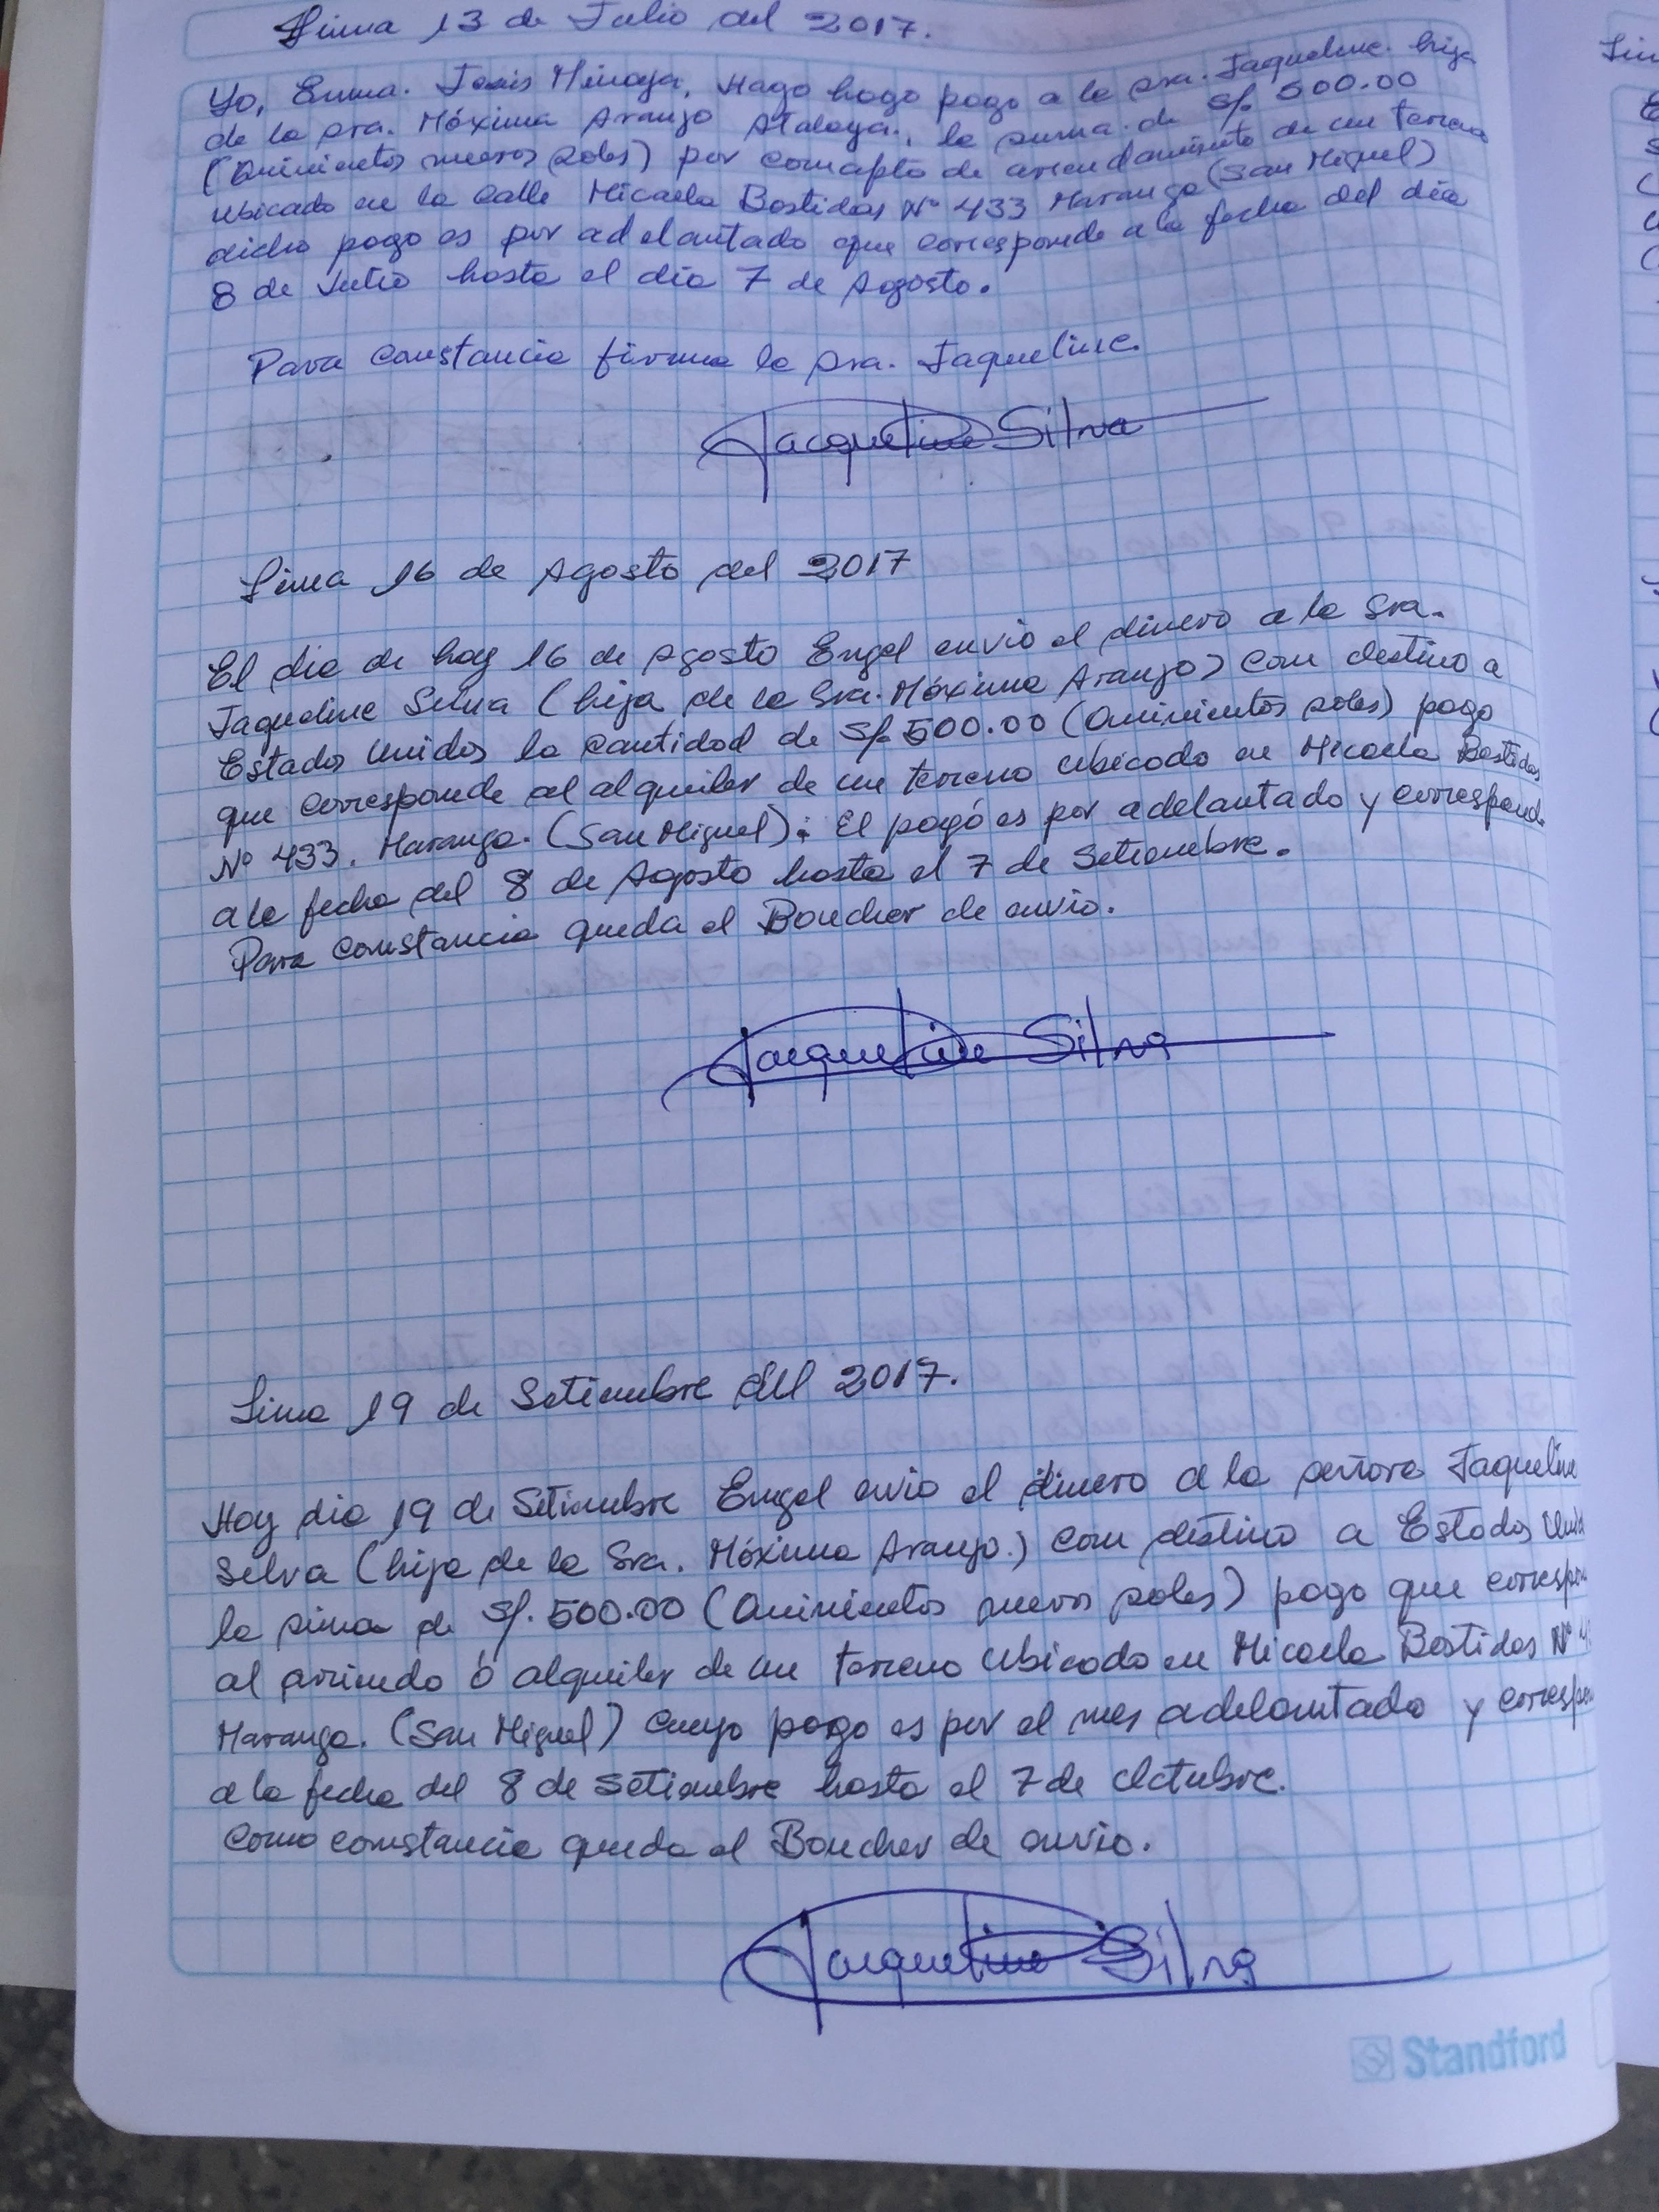 Lima 13 de Julio del 2017.
Yo, Emma. Minaya, Hago hago pago a la sra. Jaqueline. hija
de la sra. Máxima Araujo Atalaya., la suma. de S/. 500.00
(Quinientos nuevos soles) por concepto de arrendamiento de un terreno
ubicado en la calle Micaela Bastidas Nº 433 Maranga (San Miguel)
dicho pago es por adelantado que corresponde a la fecha del día
8 de Julio hasta el día 7 de Agosto.
Para constancia firma la sra. Jaqueline.
Jacqueline Silva
Lima 16 de Agosto del 2017
El dia de hoy 16 de Agosto Engel envio el dinero a la Sra.
Jaqueline Selva (hija de la Sra. Máxima Araujo) con destino a
Estados Unidos la cantidad de S/. 500.00 (Quinientos soles) pago
que corresponde al alquiler de un terreno ubicado en Micaela Bastidas
Nº 433. Maranga. (San Miguel): El pagó es por adelantado y corresponde
a la fecha del 8 de Agosto hasta el 7 de Setiembre.
Para constancia queda el Boucher de envio.
Jacqueline Silva
Lima 19 de Setiembre del 2017.
Hoy dia 19 de Setiembre Engel envio el dinero a la señora Jaqueline
Selva (hija de la Sra. Máxima Araujo.) con destino a Estados Unid
la suma de S/. 500.00 (Quinientos nuevos soles) pago que correspon
al arriendo ó alquiler de un terreno ubicado en Micaela Bastidas Nº
Maranga. (San Miguel) cuyo pago es por el mes adelantado y correspon
a la fecha del 8 de Setiembre hasta el 7 de Octubre.
Como constancia queda el Boucher de envio.
Jacqueline Silva
Standford